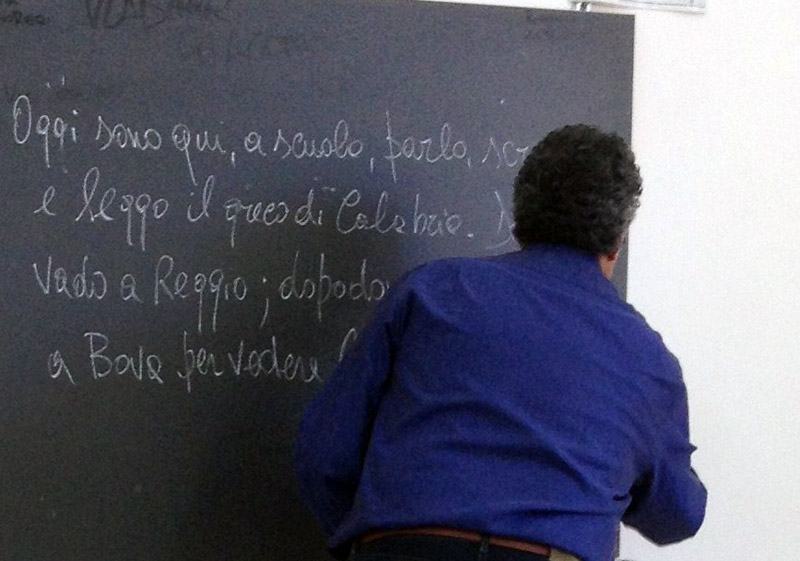 Oggi sono qui, a scuola, parlo, scr
e leggo il greco di Calabria. D
vado a Reggio; dopodo
a Bova per vedere